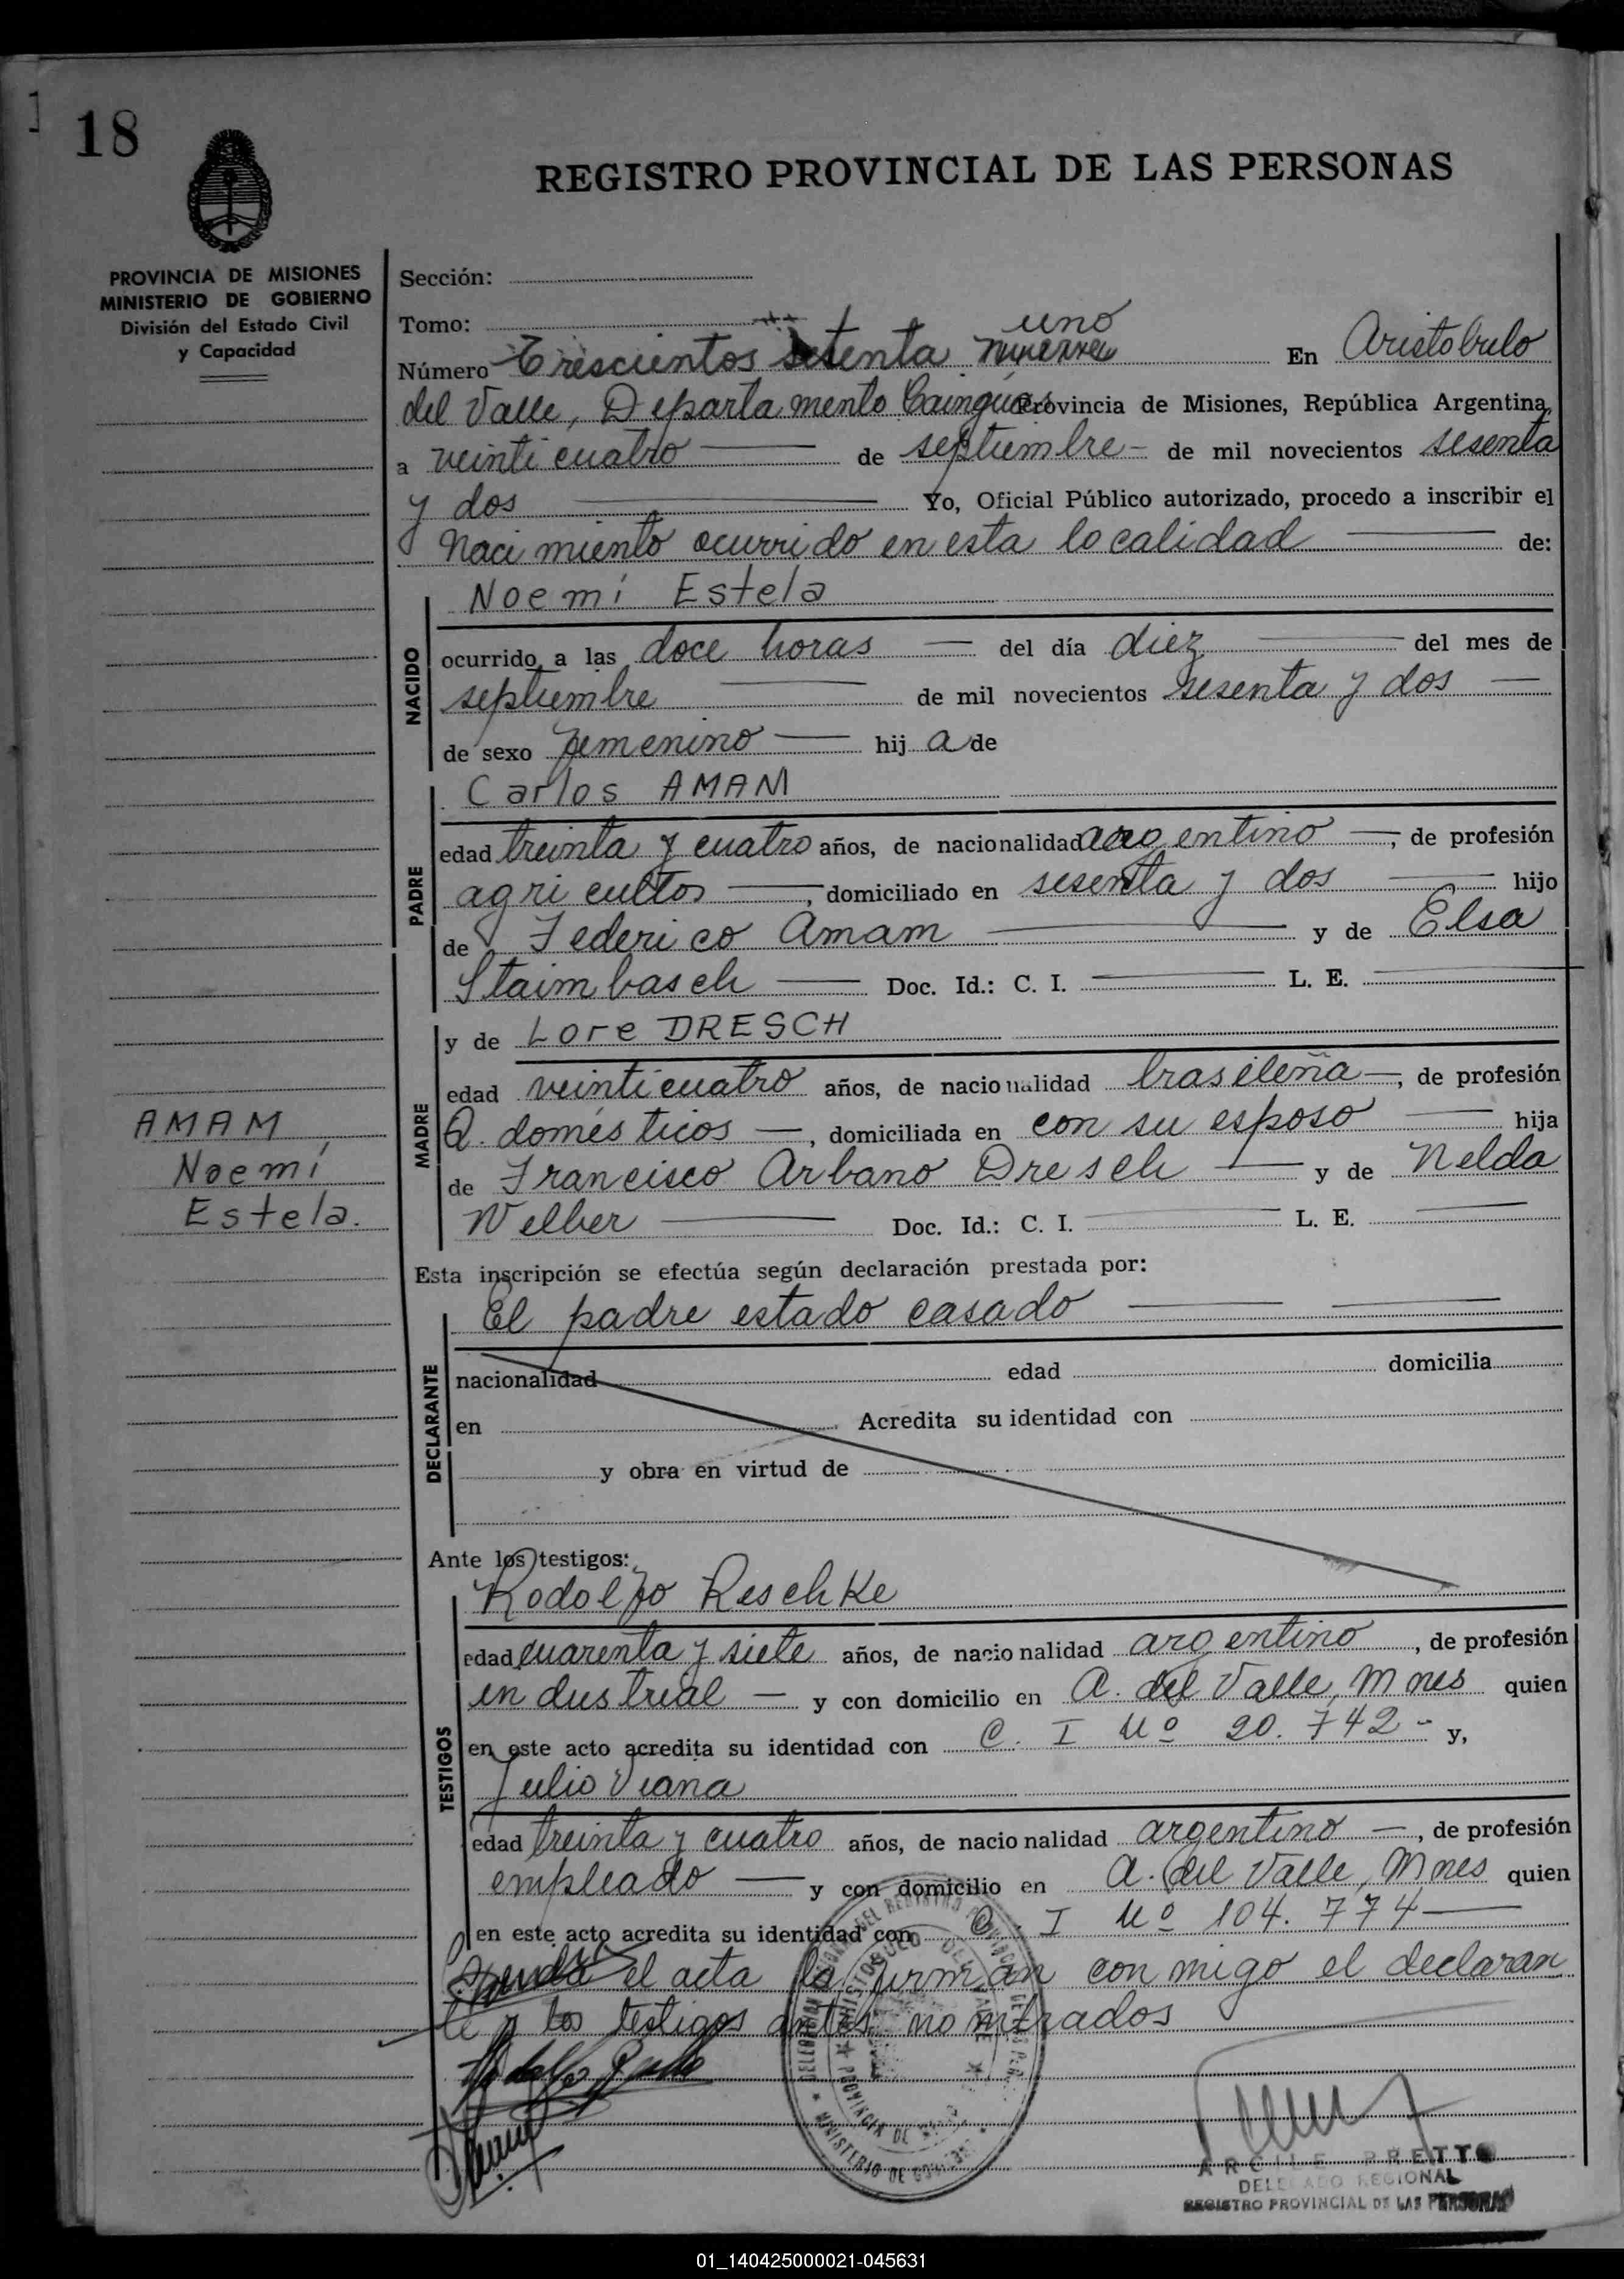 18
REGISTRO PROVINCIAL DE LAS PERSONAS
PROVINCIA DE MISIONES
MINISTERIO DE GOBIERNO
División del Estado Civil
y Capacidad
Sección:
Tomo:
uno
Número Trescientos setenta En Aristobulo
del Valle, Departamento Cainguas Provincia de Misiones, República Argentina,
a veinticuatro de septiembre de mil novecientos sesenta
y dos Yo, Oficial Público autorizado, procedo a inscribir el
Nacimiento ocurrido en esta localidad de:
NACIDO
Noemí Estela
ocurrido a las doce horas del día diez del mes de
septiembre de mil novecientos sesenta y dos
de sexo femenino hija de
PADRE
Carlos AMAM
edad treinta y cuatro años, de nacionalidad argentino, de profesión
agricultor, domiciliado en sesenta y dos hijo
de Federico Amam y de Elsa
Staimbasch Doc. Id.: C. I. L. E.
MADRE
y de Lore DRESCH
edad veinticuatro años, de nacionalidad brasileña, de profesión
Q. domésticos, domiciliada en con su esposo hija
de Francisco Arbano Dresch y de Nelda
Welber Doc. Id.: C. I. L. E.
AMAM
Noemí
Estela.
Esta inscripción se efectúa según declaración prestada por:
DECLARANTE
El padre estado casado
nacionalidad edad domicilia
en Acredita su identidad con
y obra en virtud de
Ante los testigos:
TESTIGOS
Rodolfo Reschke
edad cuarenta y siete años, de nacionalidad argentino, de profesión
industrial y con domicilio en A. del Valle, Mnes quien
en este acto acredita su identidad con C. I Nº 20.742 - y,
Julio Viana
edad treinta y cuatro años, de nacionalidad argentino, de profesión
empleado y con domicilio en A. del Valle, Mnes quien
en este acto acredita su identidad con C. I Nº 104.774
el acta la firman conmigo el declaran
te y los testigos antes nombrados
PRETTO
DELEGADO REGIONAL
REGISTRO PROVINCIAL DE LAS PERSONAS
MINISTERIO DE GOBIERNO
PROVINCIA DE
01_140425000021-045631